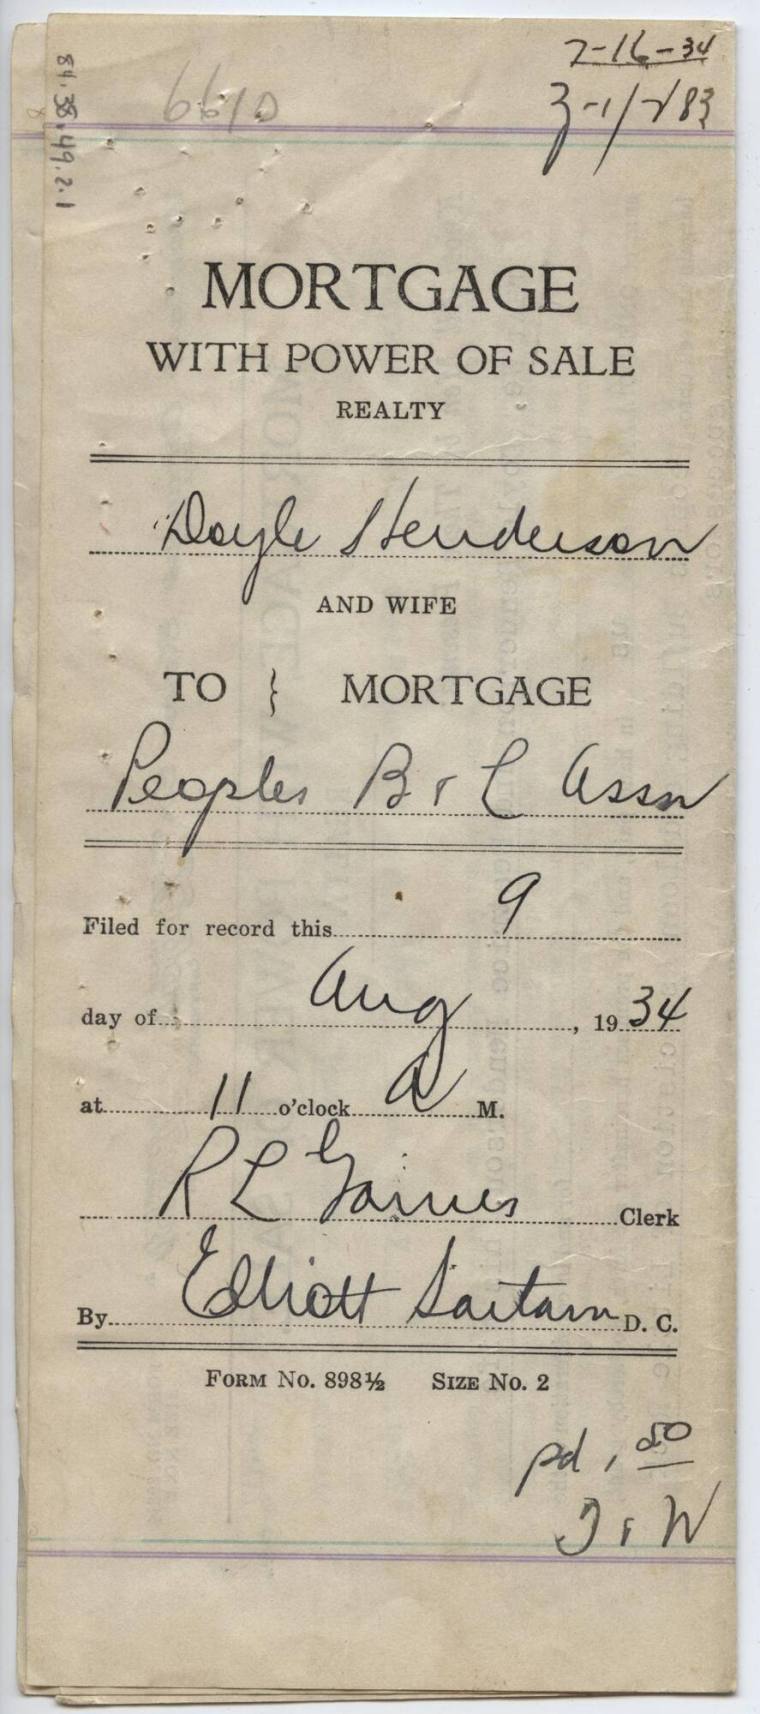 7-16-34
84.38.49.2.1
MORTGAGE
WITH POWER OF SALE
REALTY
Doyle Henderson
AND WIFE
TO } MORTGAGE
Peoples B & L Assn
Filed for record this 9
day of Aug, 1934
at 11 o'clock A M.
R L Gaines Clerk
By Elliott Sartain D. C.
FORM No. 898½ SIZE No. 2
pd, 50